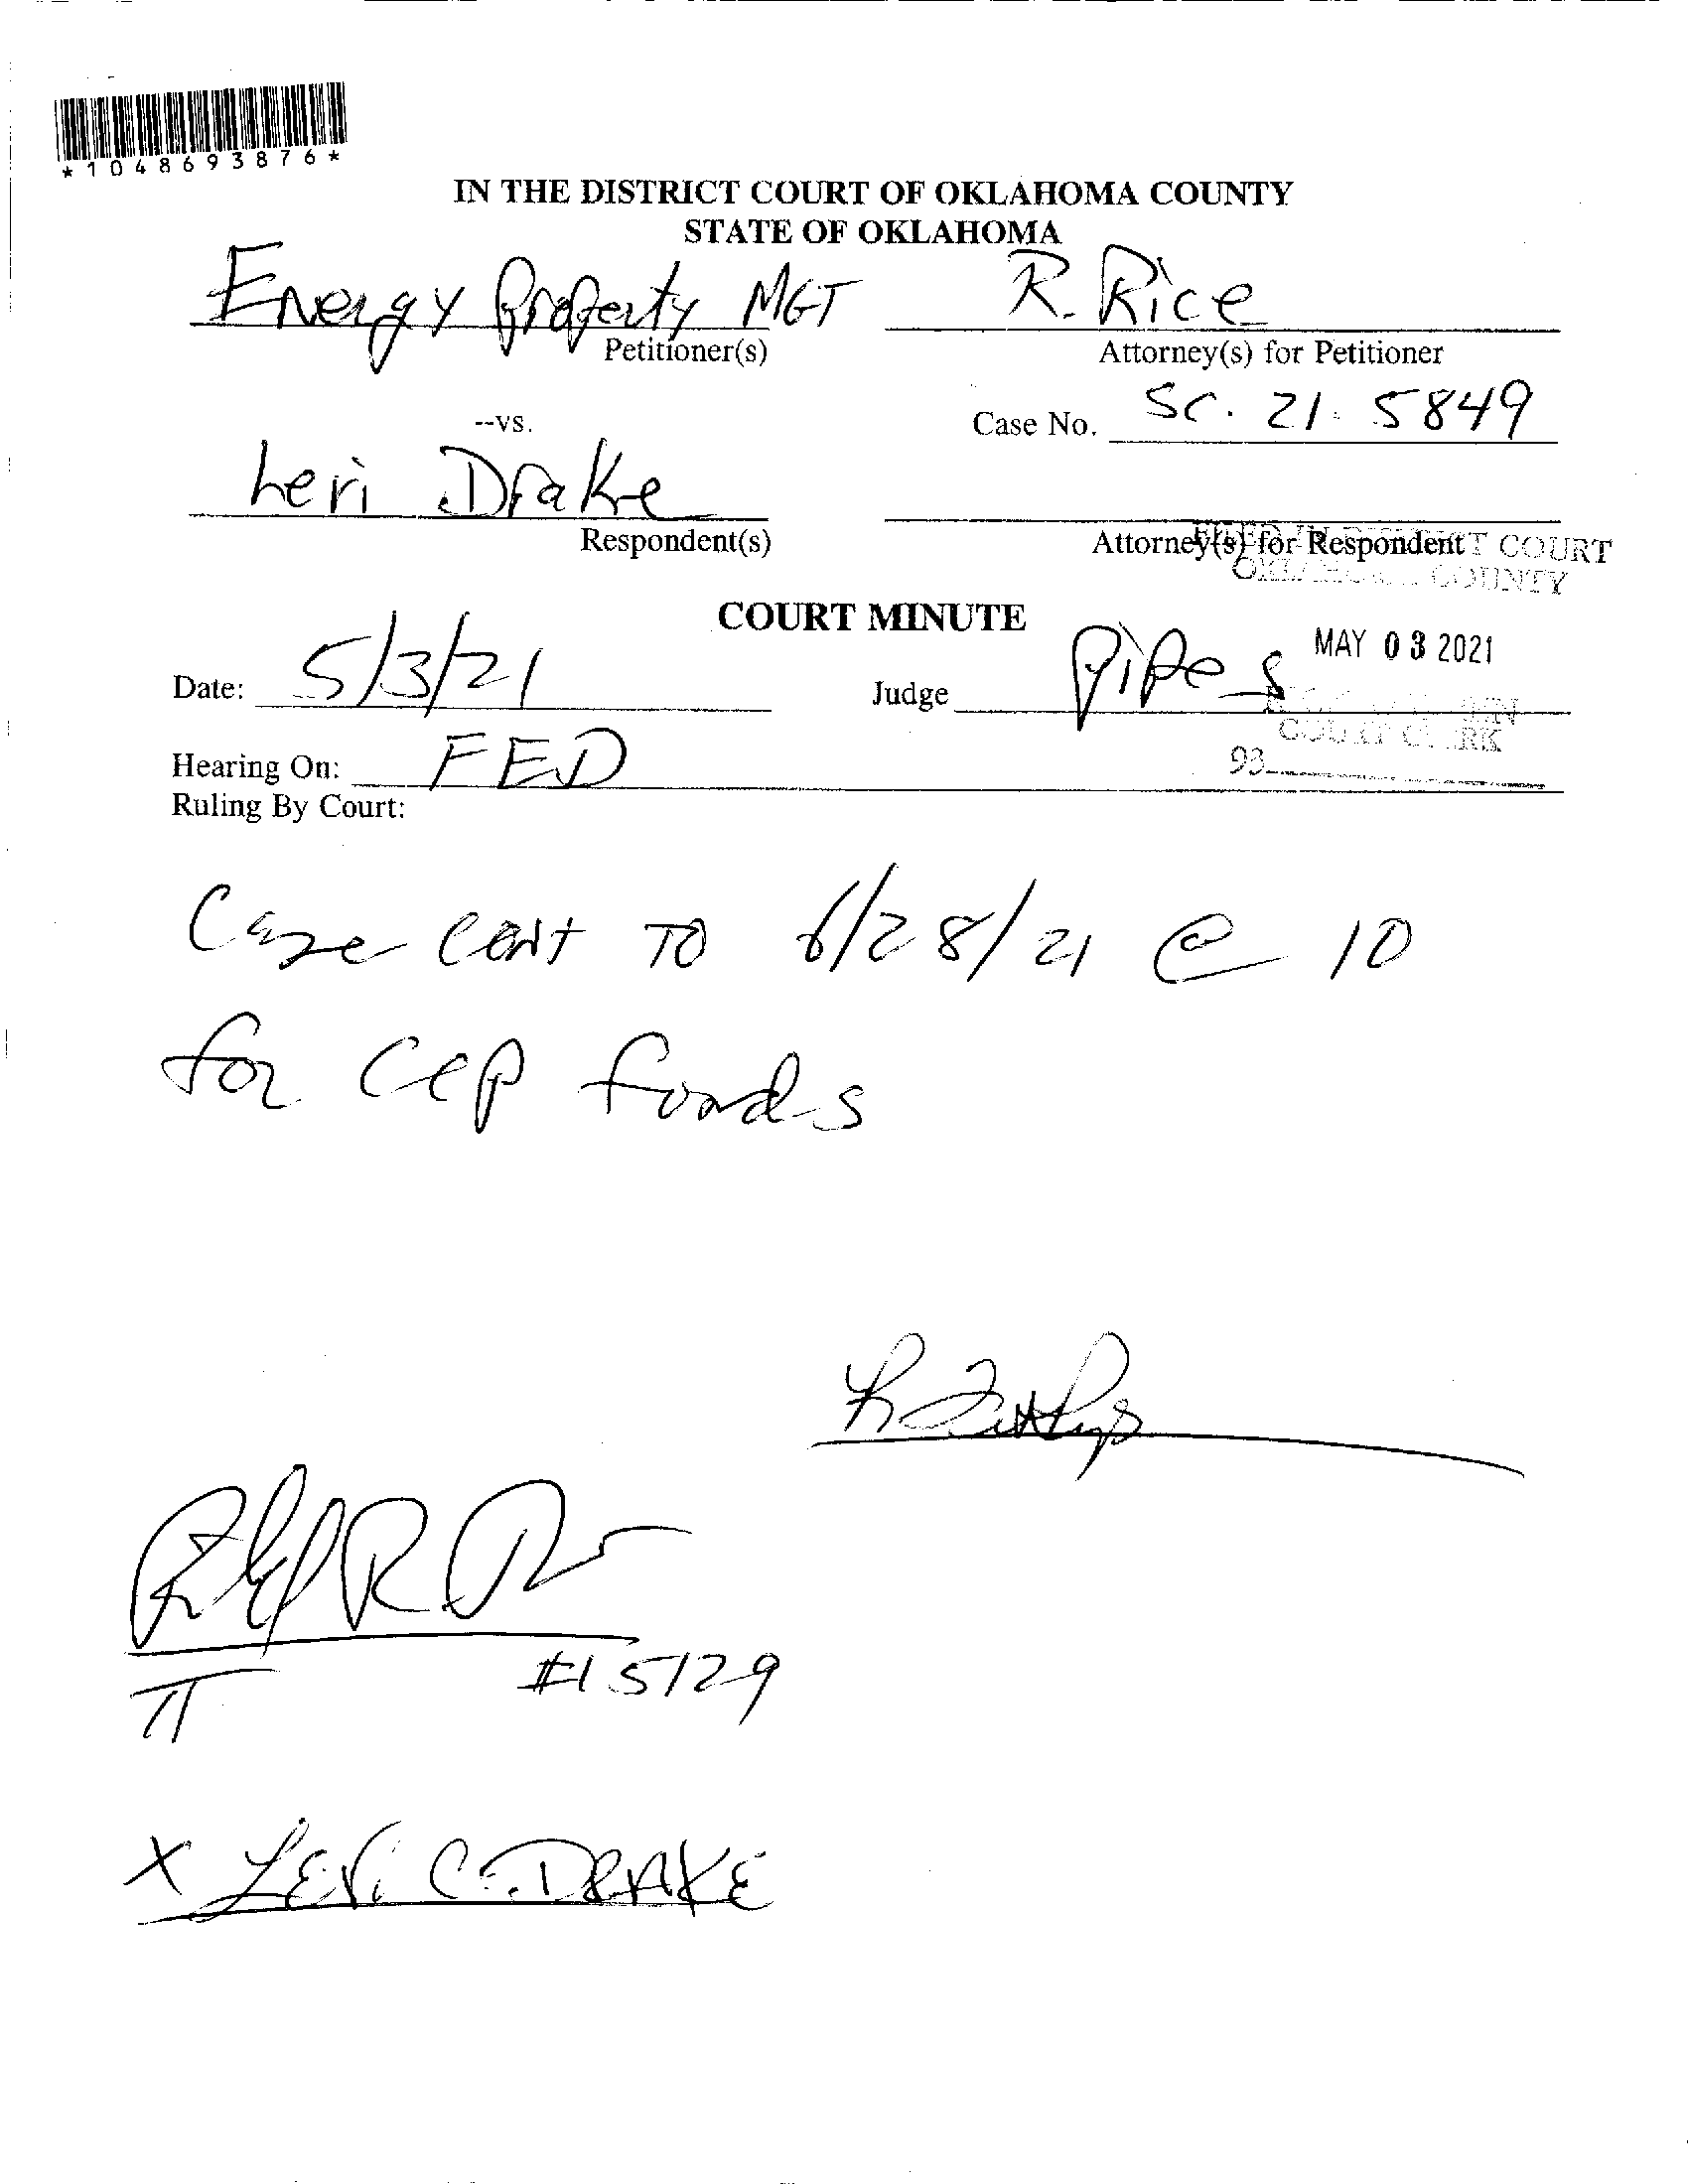 *1048693876*
IN THE DISTRICT COURT OF OKLAHOMA COUNTY
STATE OF OKLAHOMA
Energy Property MGT R. Rice
Petitioner(s) Attorney(s) for Petitioner
--vs. Case No. SC. 21. 5849
Levi Drake
Respondent(s) Attorney(s) for Respondent
COURT
COUNTY
COURT MINUTE
MAY 03 2021
Date: 5/3/21 Judge Pipes
COURT CLERK
Hearing On: FED 93
Ruling By Court:
Case cont TO 6/28/21 @ 10
for CEP funds
π #15129
X LEVI C. DRAKE